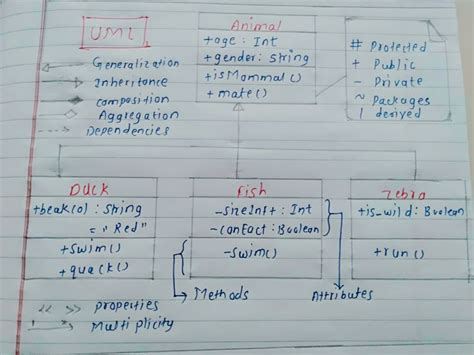 UML
Animal
+age : Int
+gender: String
+isMammal()
+ mate()
# Protected
+ Public
- Private
~ Packages
/ derived
Generalization
Inheritance
Composition
Aggregation
Dependencies
Duck
+beak(o) : String
= "Red"
+swim()
+quack()
Fish
-sizeInft : Int
-canEact :Boolean
-swim()
Zebra
+is_wild: Boolean
+run()
Methods
Attributes
<< >> properties
Multiplicity